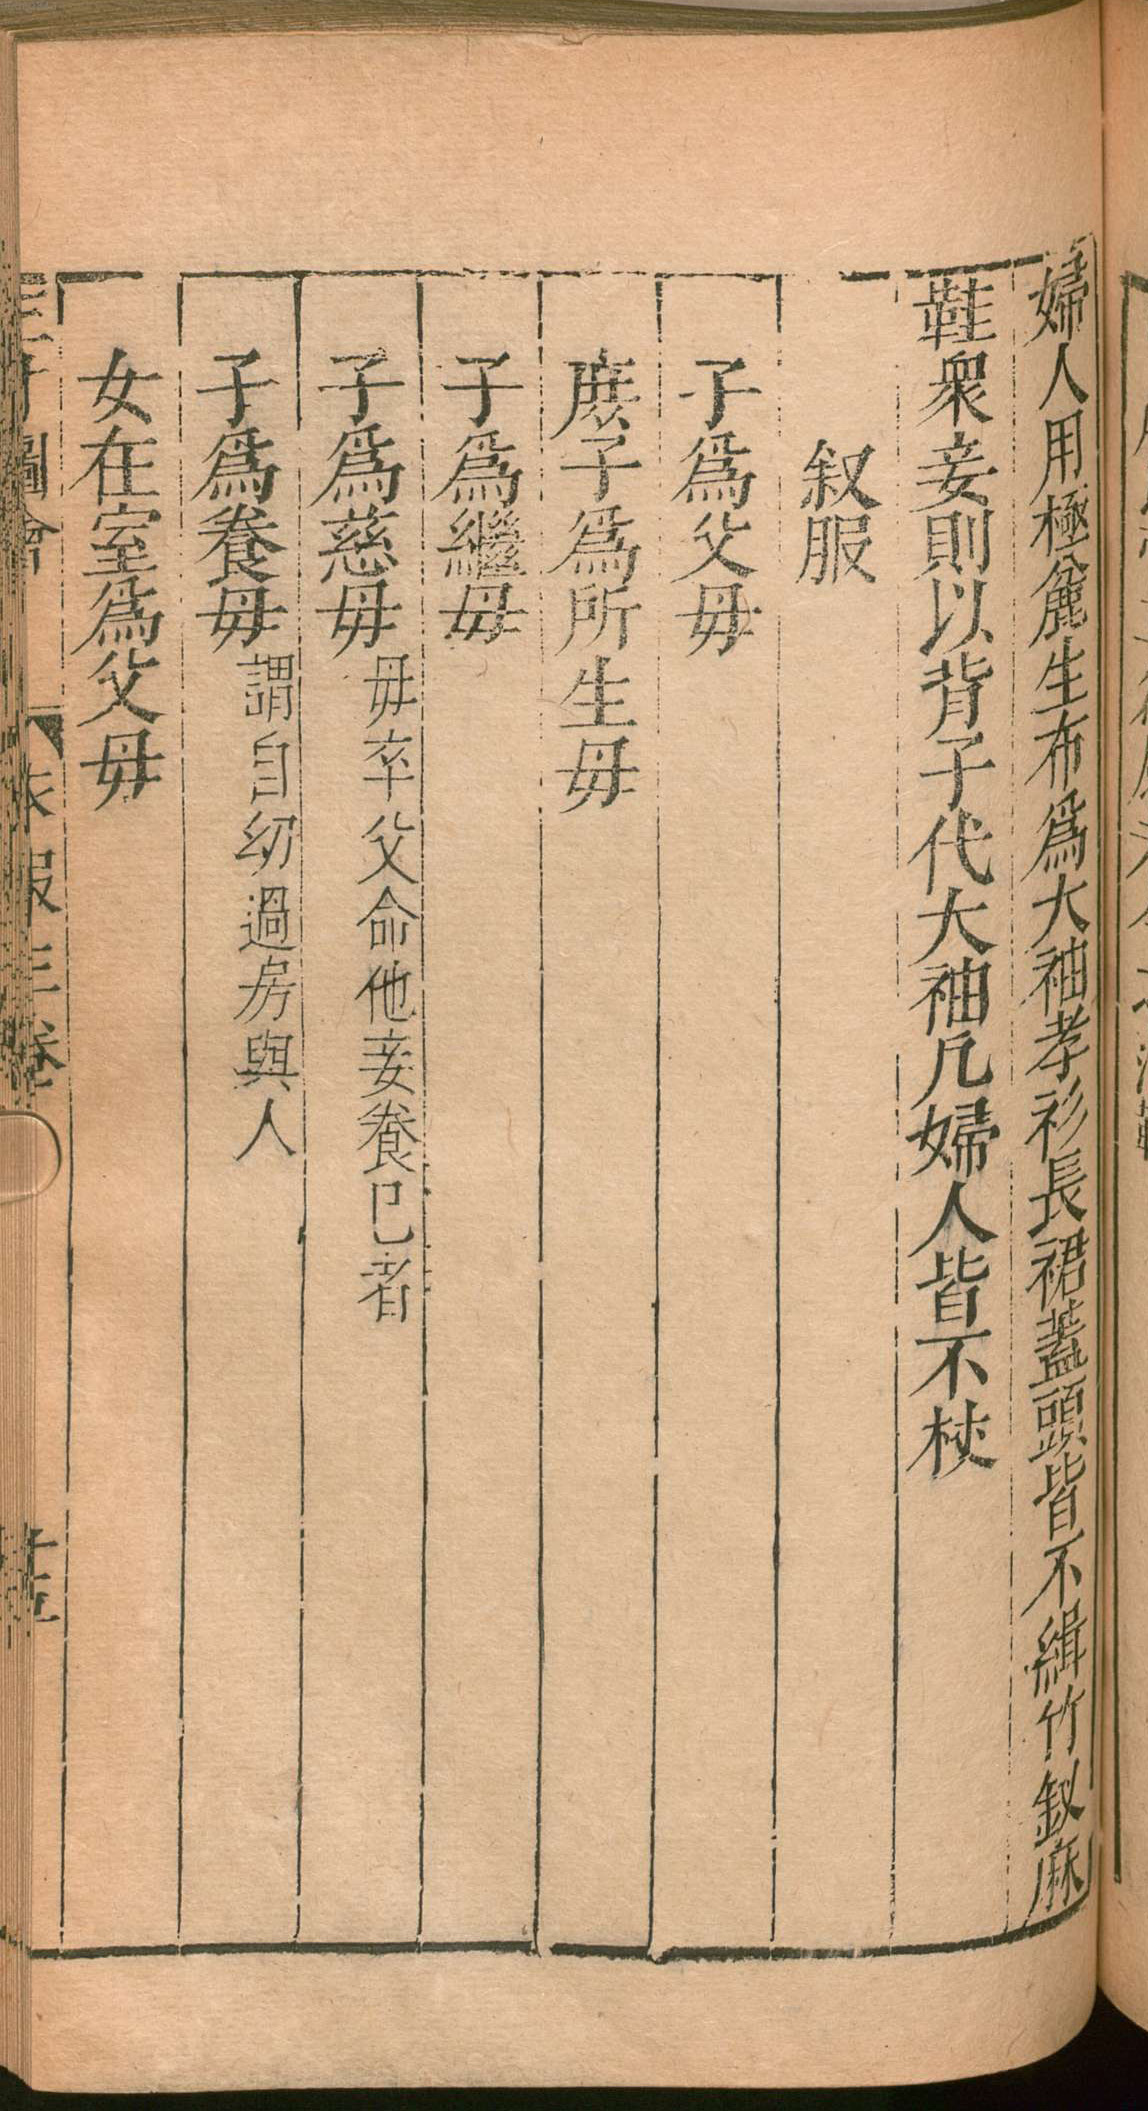 婦人用極麄生布爲大袖孝衫長裙蓋頭皆不緝竹釵麻
鞋衆妾則以背子代大袖凡婦人皆不杖
叙服
子爲父母
庶子爲所生母
子爲繼母
子爲慈母母卒父命他妾養已者
子爲養母謂自幼過房與人
女在室爲父母
圖會 衣服三卷